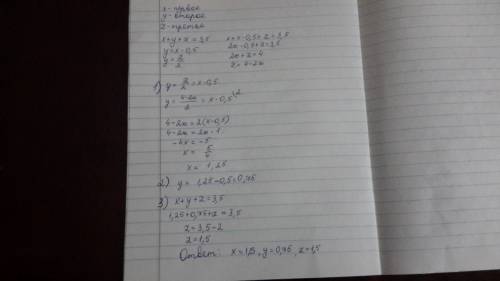 x - первое
y - второе
z - третье
x+y+z=3,5    x+x-0,5+z=3,5
y=x-0,5    2x-0,5+z=3,5
y=z/2    2x+z=4
z=4-2x
1) y=z/2=x-0,5
y=4-2x/2=x-0,5 \2
4-2x=2(x-0,5)
4-2x=2x-1
-4x=-5
x=5/4
x=1,25
2) y=1,25-0,5=0,75
3) x+y+z=3,5
1,25+0,75+z=3,5
z=3,5-2
z=1,5
Ответ: y=0,75, z=1,5